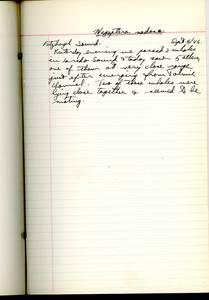 Megaptera nodosa
Fitzhugh Sound. Sept 4/46
Yesterday evening we passed 2 whales
in Laredo Sound & today saw 5 others,
one of them at very close range
just after emerging from Lama
Channel. Two of these whales were
lying close together & seemed to be
mating.